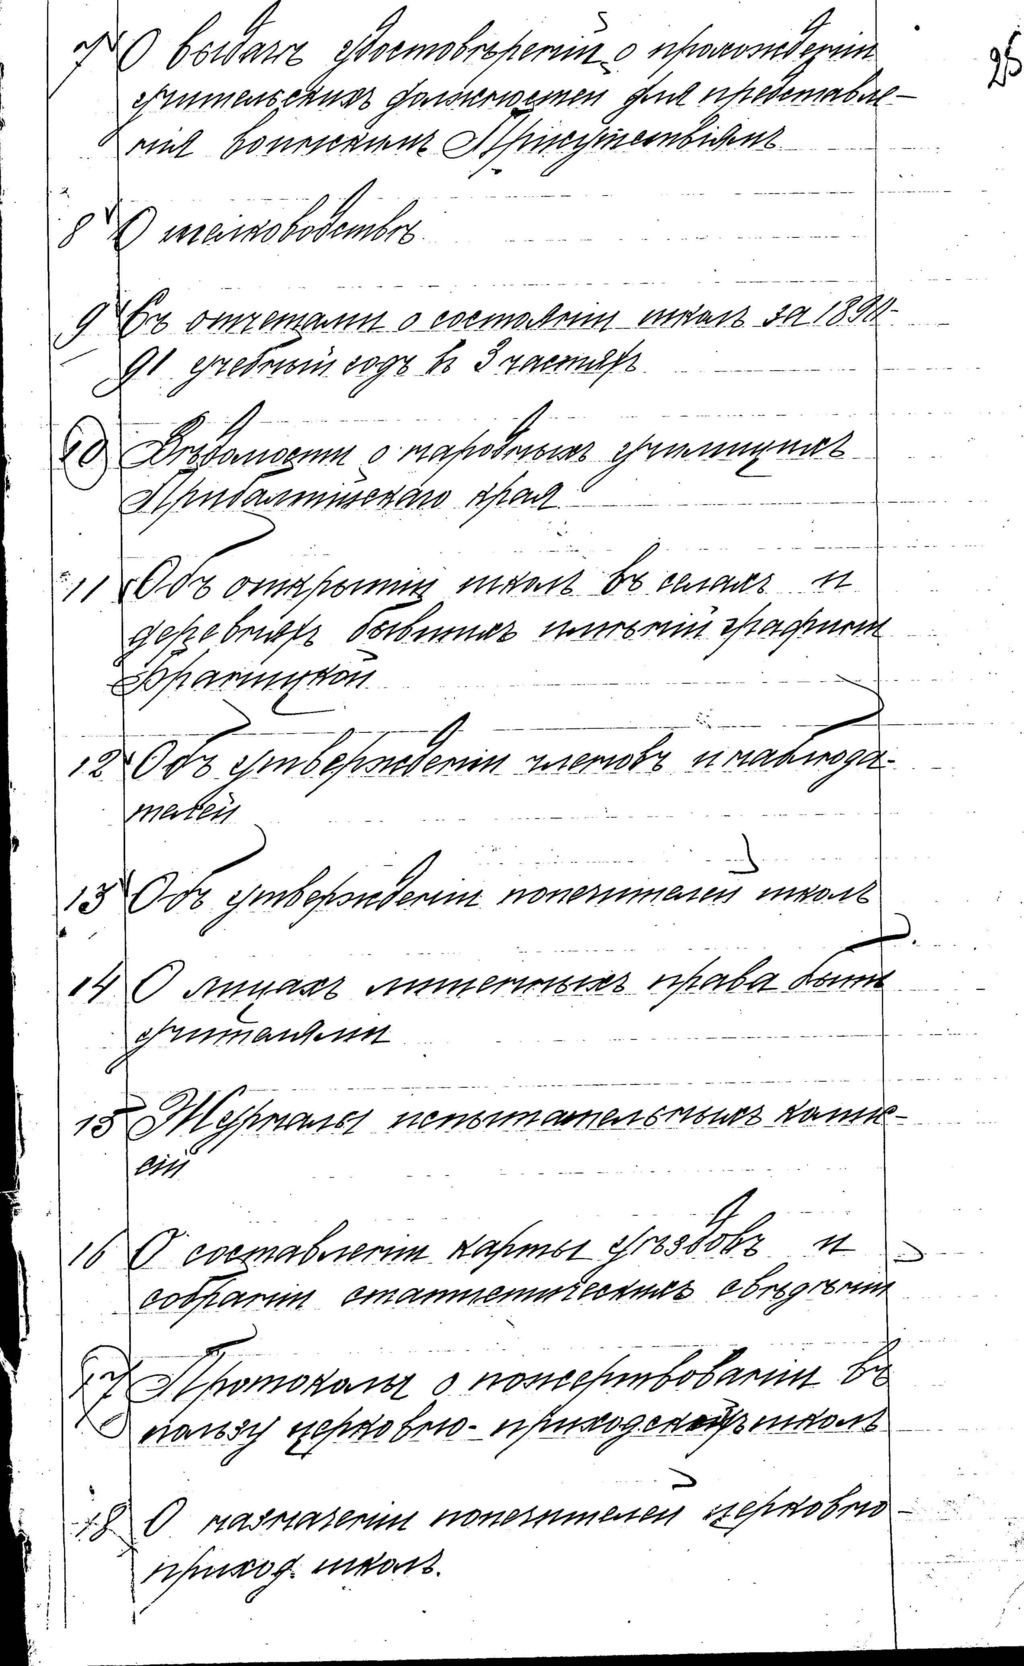 25
7 О выдачѣ удостовѣреній о прохожденіи
учительскихъ должностей для представле-
нія воинскимъ Присутствіямъ
8 О шелководствѣ
9 Съ отчетами о состояніи школъ за 1890-
91 учебный годъ въ 3 частяхъ
10 Вѣдомости о народныхъ училищахъ
Прибалтійскаго края
11 Объ открытіи школъ въ селахъ и
деревняхъ бывшихъ имѣній графини
Браницкой
12 Объ утвержденіи членовъ и наблюда-
телей
13 Объ утвержденіи попечителей школъ
14 О лицахъ лишенныхъ права быть
учителями
15 Журналы испытательныхъ комис-
сій
16 О составленіи карты уѣздовъ и
собраніи статистическихъ свѣдѣній
17 Протоколы о пожертвованіи въ
пользу церковно-приходскихъ школъ
18 О назначеніи попечителей церковно-
приход. школъ.